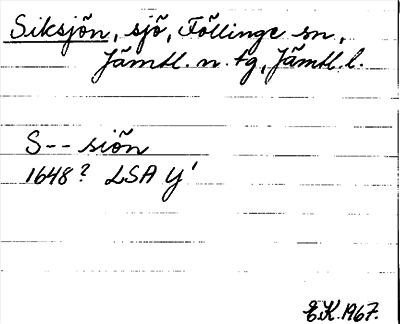 Siksjön, sjö, Föllinge sn,
Jämtl. n. tg, Jämtl. l.
S-- siön
1648? LSA Y'
E.K. 1967.